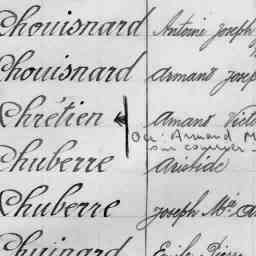 Chouisnard Antoine Joseph
Chouisnard Armand Josep
Chrétien Amant Victo
Ou: Armand M
Chuberre Aristide
Chuberre Joseph Mie A
Chuinard Emile Pierr